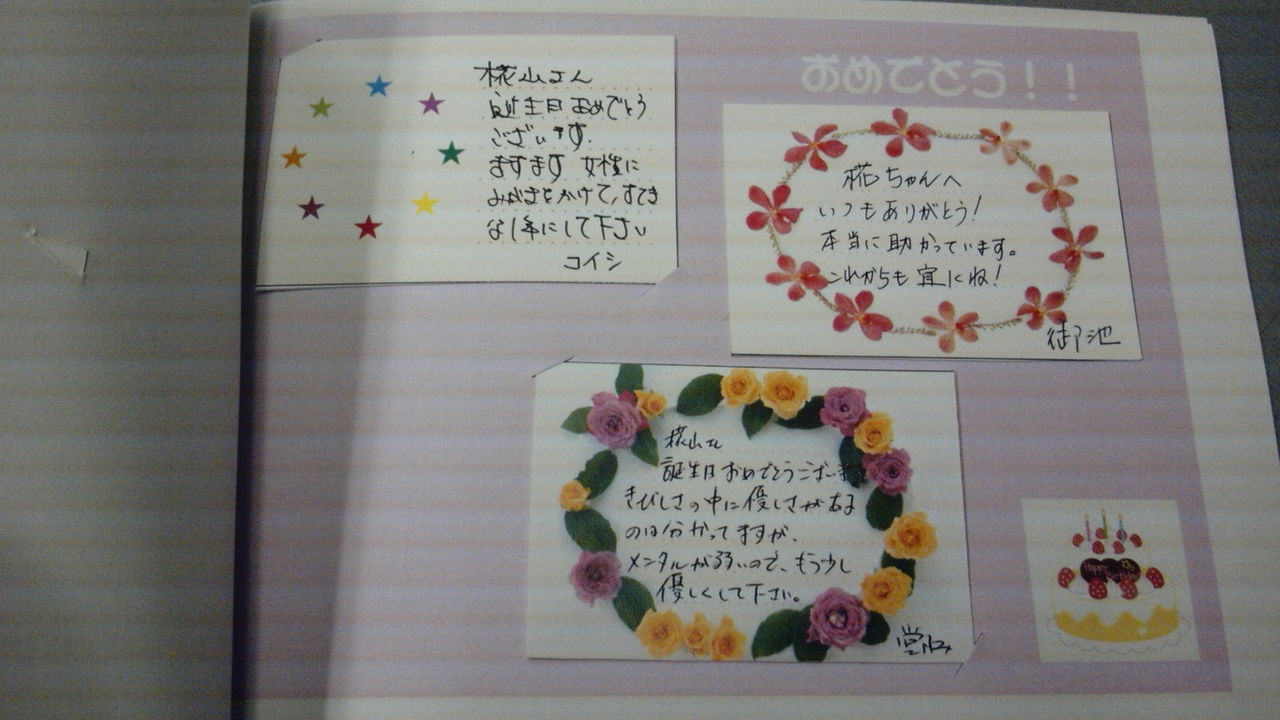 椛山さん
誕生日おめでとう
ございます。
ますます 女性に
みがきをかけて、すてき
な1年にして下さい
コイシ
おめでとう！！
椛ちゃんへ
いつもありがとう！
本当に助かっています。
これからも宜にね！
御池
椛山さん
誕生日おめでとうございます
きびしさの中に優しさがある
のは分かってますが、
メンタルが弱いので、もう少し
優しくして下さい。
Happy